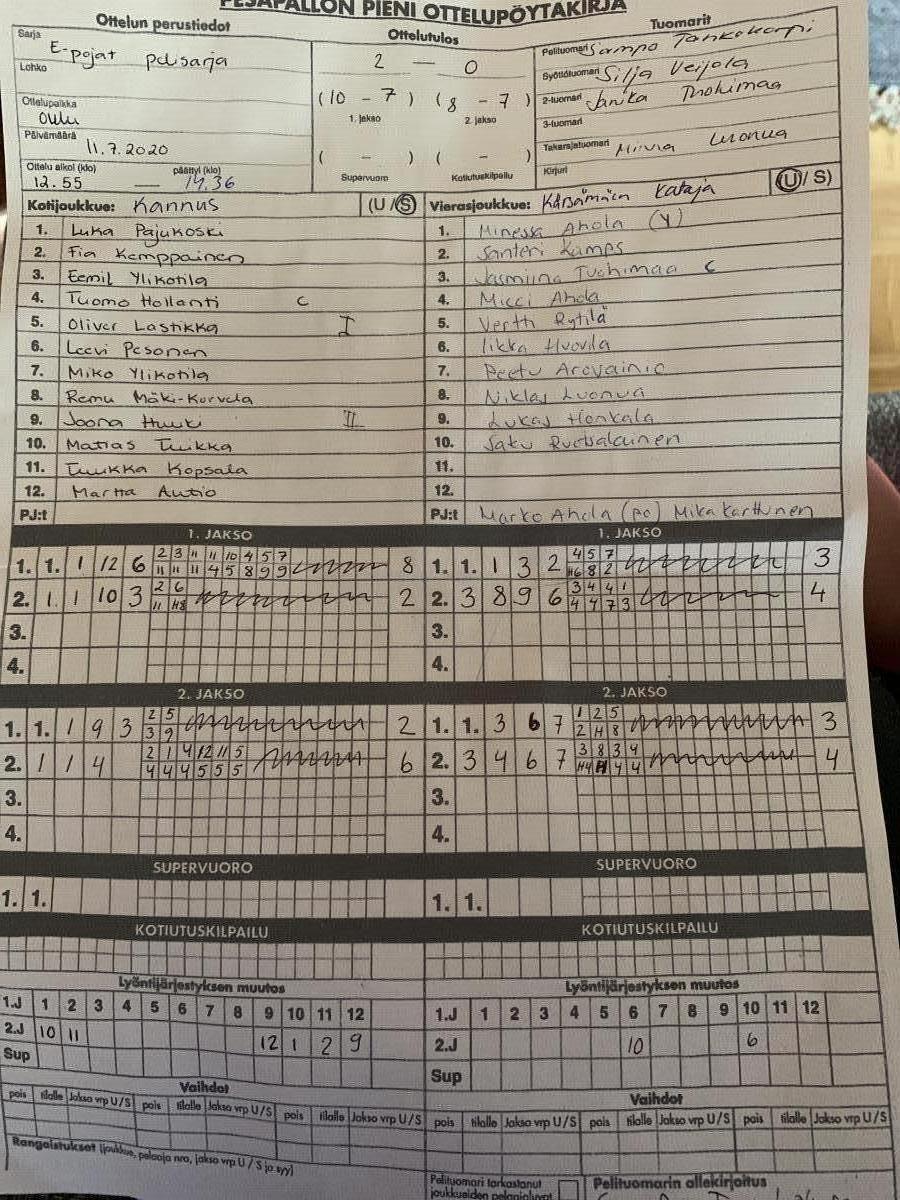 PESÄPALLON PIENI OTTELUPÖYTÄKIRJA
Ottelun perustiedot
Sarja E-pojat pelisarja
Lohko
Ottelupaikka Oulu
Päivämäärä 11.7.2020
Ottelu alkoi (klo) päättyi (klo)
12.55 — 14.36
Ottelutulos
2 — 0
(10 - 7) (8 - 7)
1. jakso 2. jakso
( - ) ( - )
Supervuoro Kotiutuskilpailu
Tuomarit
Pelituomari Sampo Tankokorpi
Syöttötuomari Silja Veijola
2-tuomari Janika Tuohimaa
3-tuomari
Takarajatuomari Minvia Luonua
Kirjuri
Kotijoukkue: Kannus (U/S)
1. Luka Pajukoski
2. Fia Kemppainen
3. Eemil Ylikotila
4. Tuomo Hollanti C
5. Oliver Lastikka I
6. Leevi Pesonen
7. Miko Ylikotila
8. Remu Mäki-Korvela
9. Joona Huuki II
10. Matias Tuikka
11. Tuukka Kopsala
12. Martta Autio
PJ:t
Vierasjoukkue: Kärsämäen Kataja (U/S)
1. Minessa Ahola (Y)
2. Santeri Kamps
3. Jasmiina Tuohimaa C
4. Micci Ahola
5. Vertti Rytilä
6. Iikka Huovila
7. Peetu Arovainio
8. Niklas Luonua
9. Lukas Honkala
10. Saku Ruotsalainen
11.
12.
PJ:t Marko Ahola (PO) Mika Karttunen
1. JAKSO
1. 1. 1 12 6 2 3 11 11 10 4 5 7 8
11 11 11 4 5 8 9 9
2. 1 1 10 3 2 6 2
11 H8
3.
4.
1. JAKSO
1. 1. 1 3 2 4 5 7 3
H6 8 2
2. 3 8 9 6 3 4 4 1 4
4 4 7 3
3.
4.
2. JAKSO
1. 1. 1 9 3 2 5 2
3 9
2. 1 1 4 2 1 4 12 11 5 6
4 4 4 5 5 5
3.
4.
2. JAKSO
1. 1. 3 6 7 1 2 5 3
2 H 8
2. 3 4 6 7 3 8 3 4 4
H4 H 4 4
3.
4.
SUPERVUORO
1. 1.
SUPERVUORO
1. 1.
KOTIUTUSKILPAILU
KOTIUTUSKILPAILU
Lyöntijärjestyksen muutos
1.J 1 2 3 4 5 6 7 8 9 10 11 12
2.J 10 11 12 1 2 9
Sup
Lyöntijärjestyksen muutos
1.J 1 2 3 4 5 6 7 8 9 10 11 12
2.J 10 6
Sup
Vaihdot
pois tilalle Jakso vrp U/S pois tilalle Jakso vrp U/S pois tilalle Jakso vrp U/S
Vaihdot
pois tilalle Jakso vrp U/S pois tilalle Jakso vrp U/S pois tilalle Jakso vrp U/S
Rangaistukset (joukkue, pelaaja nro, jakso vrp U / S ja syy)
Pelituomari tarkastanut
joukkueiden pelaajaluvat
Pelituomarin allekirjoitus